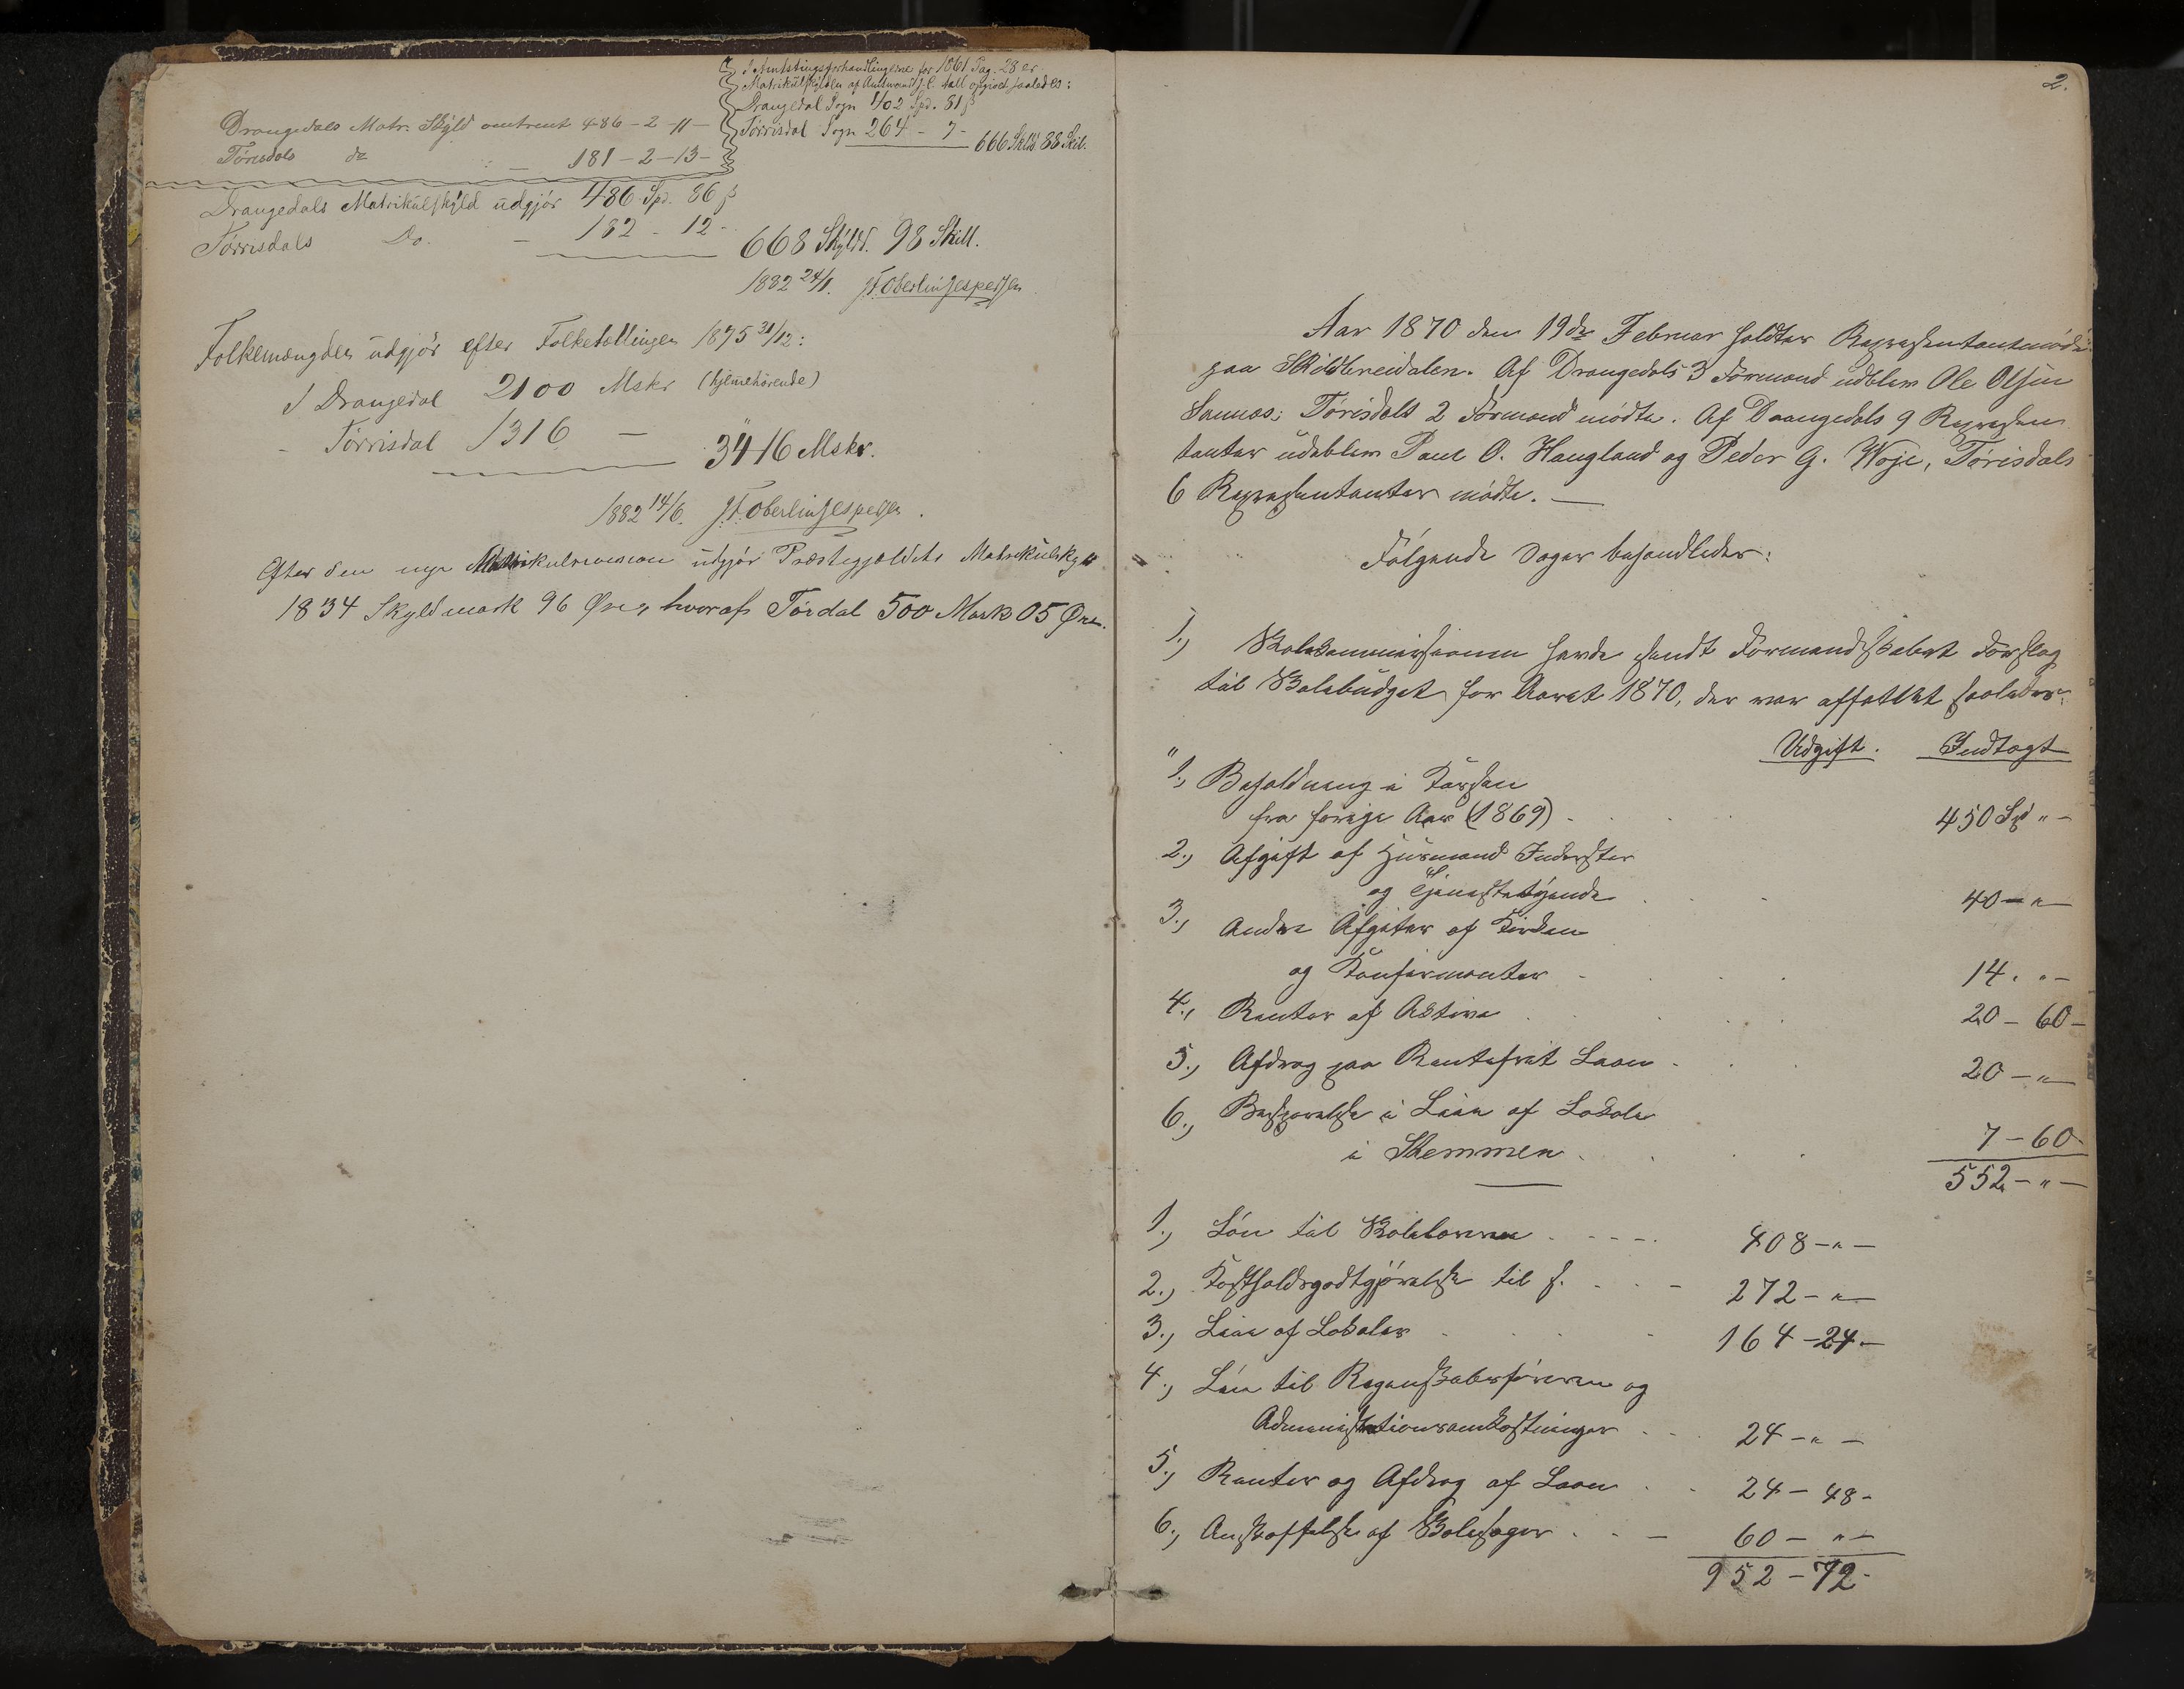 I Amtstingsforhandlingerne for 1861 Pag. 28 er
Matrikülskylden af Amtmand J. C. Aall opgivet saaledes:
Drangedal Sogn 402 Spd. 81 ß
Törrisdal Sogn 264 - 7 - 666 Skyldd. 88 Skil.
Drangedals Matr. Skÿld omtrent 486 - 2 - 11 -
Törisdals do 181 - 2 - 13 -
Drangedals Matrikülskÿld üdgjör 486 Spd. 86 ß
Törrisdals Do. - 182 - 12 -
668 Skÿldd. 98 Skill.
1882 24/1. JFOberlinJespersen
Folkemængden üdgjör efter Folketællingen 1875 31/12:
I Drangedal 2100 Mskr (hjemmehörende)
- Törrisdal 1316 — 3416 Mskr.
1882 14/6. J.F.OberlinJespersen.
Efter den nye Matrikulrevision udgjör Præstegjældets Matrikülskyld
1834 Skyldmark 96 Øre, hvoraf Tördal 500 Mark 05 Øre.
2.
Aar 1870 den 19de Februar holdtes Repræsentantmöde
paa Skildbreidalen. Af Drangedals 3 Formænd udblev Ole Olsen
Sannæs; Törisdals 2 Formænd mödte. Af Drangedals 9 Repræsen
tanter üdeblev Paul O. Haugland og Peder G. Woje, Törisdals
6 Repræsentanter mödte. —
Fölgende Sager behandledes:
1.) Skolekommissionen havde sendt Formandskabet Forslag
til Skolebüdget for Aaret 1870, der var affattet saaledes:
Udgift. Indtægt
"1., Beholdning i Kassen
fra forrige Aar (1869) 450 Spd " -
2., Afgift af Hüsmænd Inderster
og Tjenestetÿende 40 - " -
3., Andre Afgifter af Kirken
og Konfirmanter 14 . " -
4., Renter af Activa 20 - 60 -
5., Afdrag paa Rentefrit Laan 20 - " -
6., Besparelse i Leie af Lokale
i Stemmen 7 - 60 -
552 - " -
1., Lön til Skolelærerne 408 - " -
2., Kostholdsgodtgjörelse til s. 272 - " -
3., Leie af Lokaler 164 - 24 -
4., Lön til Regnskabsföreren og
Administrationsomkostninger 24 - " -
5., Renter og Afdrag af Laan 24 - 48 -
6., Anskaffelse af Skolesager 60 - " -
952 - 72 -